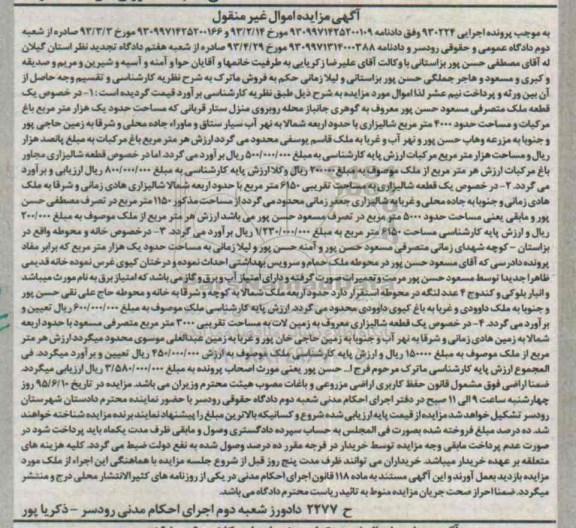 آگهی مزایده اموال غیر منقول
به موجب پرونده اجرایی ۹۳۰۲۲۴ وفق دادنامه ۹۳۰۹۹۷۱۴۲۵۲۰۰۱۰۹ مورخ ۹۳/۲/۱۴ و ۹۳۰۹۹۷۱۴۲۵۲۰۰۱۶۶ مورخ ۹۳/۳/۳ صادره از شعبه
دوم دادگاه عمومی و حقوقی رودسر و دادنامه ۹۳۰۹۹۷۱۳۱۴۰۰۰۳۸۸ مورخ ۹۳/۴/۲۹ صادره از شعبه هفتم دادگاه تجدید نظر استان گیلان
له آقای مصطفی حسن پور بزاستانی با وکالت آقای علیرضا زکریایی به طرفیت خانمها و آقایان حوا و آمنه و آسیه و شیرین و مریم و صدیقه
و کبری و مسعود و هاجر جملگی حسن پور بزاستانی و لیلا زمانی حکم به فروش ماترک به شرح نظریه کارشناسی و تقسیم وجه حاصل از
آن بین ورثه و پرداخت نیم عشر لذا اموال مورد مزایده به شرح ذیل طبق نظریه کارشناسی برآورد قیمت گردیده است: ۱- در خصوص یک
قطعه ملک متصرفی مسعود حسن پور معروف به گوهری جانباز محله روبروی منزل ستار قربانی که مساحت حدود یک هزار متر مربع باغ
مرکبات و مساحت حدود ۴۰۰۰ متر مربع شالیزاری با حدود اربعه شمالا به نهر آب سیار ستناق و ماوراء جاده محلی و شرقا به زمین حاجی پور
و جنوبا به مزرعه وهاب حسن پور و نهر آب و غربا به ملک قاسم یوسفی محدود می گردد ارزش هر متر مربع باغ مرکبات به مبلغ پانصد هزار
ریال و مساحت هزار متر مربع مرکبات ارزش پایه کارشناسی به مبلغ ۵۰۰/۰۰۰/۰۰۰ ریال برآورد می گردد. اما در خصوص قطعه شالیزاری مجاور
باغ مرکبات ارزش هر متر مربع از ملک موصوف به مبلغ ۲۰۰۰۰۰ ریال و کلا ارزش پایه کارشناسی به مبلغ ۸۰۰/۰۰۰/۰۰۰ ریال ارزیابی و برآورد
می گردد. ۲- در خصوص یک قطعه شالیزاری به مساحت تقریبی ۶۱۵۰ متر مربع با حدود اربعه شمالا شالیزاری هادی زمانی و شرقا به ملک
هادی زمانی و جنوبا به جاده محلی و غربا به شالیزاری جعفر زمانی محدود می گردد از مساحت مذکور ۱۱۵۰ متر مربع در تصرف مصطفی حسن
پور و مابقی یعنی مساحت حدود ۵۰۰۰ متر مربع در تصرف مسعود حسن پور می باشد ارزش هر متر مربع از ملک موصوف به مبلغ ۲۰۰/۰۰۰
ریال و ارزش پایه کارشناسی مساحت ۶۱۵۰ متر مربع به مبلغ ۱/۲۳۰/۰۰۰/۰۰۰ ریال برآورد می گردد. ۳- در خصوص خانه و محوطه واقع در
بزاستان - کوچه شهدای زمانی متصرفی مسعود حسن پور و آمنه حسن پور و لیلا زمانی به مساحت حدود یک هزار متر مربع که برابر مفاد
پرونده دادرسی که آقای مسعود حسن پور در محوطه ملک حمام و سرویس بهداشتی احداث نموده و درختان کیوی غرس نموده خانه قدیمی
ظاهرا جدیدا توسط مسعود حسن پور مرمت و تعمیرات صورت گرفته و دارای امتیاز آب و برق و گاز می باشد که امتیاز برق به نام مورث میباشد
و انبار بلوکی و کندوج ۴ عدد لنگه در محوطه استقرار دارد حدود اربعه ملک شمالا به کوچه و شرقا به خانه و محوطه حاج علی نقی حسن پور
و جنوبا به ملک داوودی و غربا به باغ کیوی داوودی محدود می گردد. ارزش پایه کارشناسی ملک موصوف به مبلغ ۶۰۰/۰۰۰/۰۰۰ ریال تعیین و
برآورد می گردد. ۴- در خصوص یک قطعه شالیزاری معروف به زمین لات به مساحت تقریبی ۳۰۰۰ متر مربع متصرفی مسعود با حدود اربعه
شمالا به زمین هادی زمانی و شرقا به نهر آب و جنوبا به زمین حاجی خان پور و غربا به زمین عبدالعلی موسوی محدود میگردد ارزش هر متر
مربع از ملک موصوف به مبلغ ۱۵۰۰۰۰ ریال و ارزش پایه کارشناسی ملک موصوف به ارزش ۴۵۰/۰۰۰/۰۰۰ ریال تعیین و برآورد میگردد. فی
المجموع ارزش پایه کارشناسی ماترک مرحوم فرج ا... حسن پور یعنی مورث اصحاب پرونده به مبلغ ۳/۵۸۰/۰۰۰/۰۰۰ ریال ارزیابی میگردد.
ضمنا اراضی فوق مشمول قانون حفظ کاربری اراضی مزروعی و باغات مصوب هیئت محترم وزیران می باشد. مزایده در تاریخ ۹۵/۶/۱۰ روز
چهارشنبه ساعت ۹ الی ۱۱ صبح در دفتر اجرای احکام مدنی شعبه دوم دادگاه حقوقی رودسر با حضور نماینده محترم دادستان شهرستان
رودسر تشکیل خواهد شد مزایده از قیمت پایه ارزیابی شده شروع و کسانیکه بالاترین مبلغ را پیشنهاد نمایند برنده مزایده شناخته خواهند
شد. ده درصد مبلغ فروخته شده بصورت فی المجلس به حساب سپرده دادگستری وصول و مابقی ظرف مدت یکماه باید پرداخت شود در
صورت عدم پرداخت مابقی وجه مزایده توسط خریدار در فرجه مقرر ده درصد وصول شده به نفع دولت ضبط می گردد. کلیه هزینه های
متعلقه بر عهده خریدار میباشد. خریداران می توانند ظرف مدت پنج روز قبل از شروع جلسه مزایده با هماهنگی این اجراء از ملک مورد
مزایده بازدید بعمل آورند و این آگهی مستند به ماده ۱۱۸ قانون اجرای احکام مدنی در یکی از روزنامه های کثیرالانتشار محلی درج و منتشر
میگردد. ضمنا احراز صحت جریان مزایده منوط به تائید ریاست محترم دادگاه می باشد.
ح ۲۲۷۷ دادورز شعبه دوم اجرای احکام مدنی رودسر - ذکریا پور